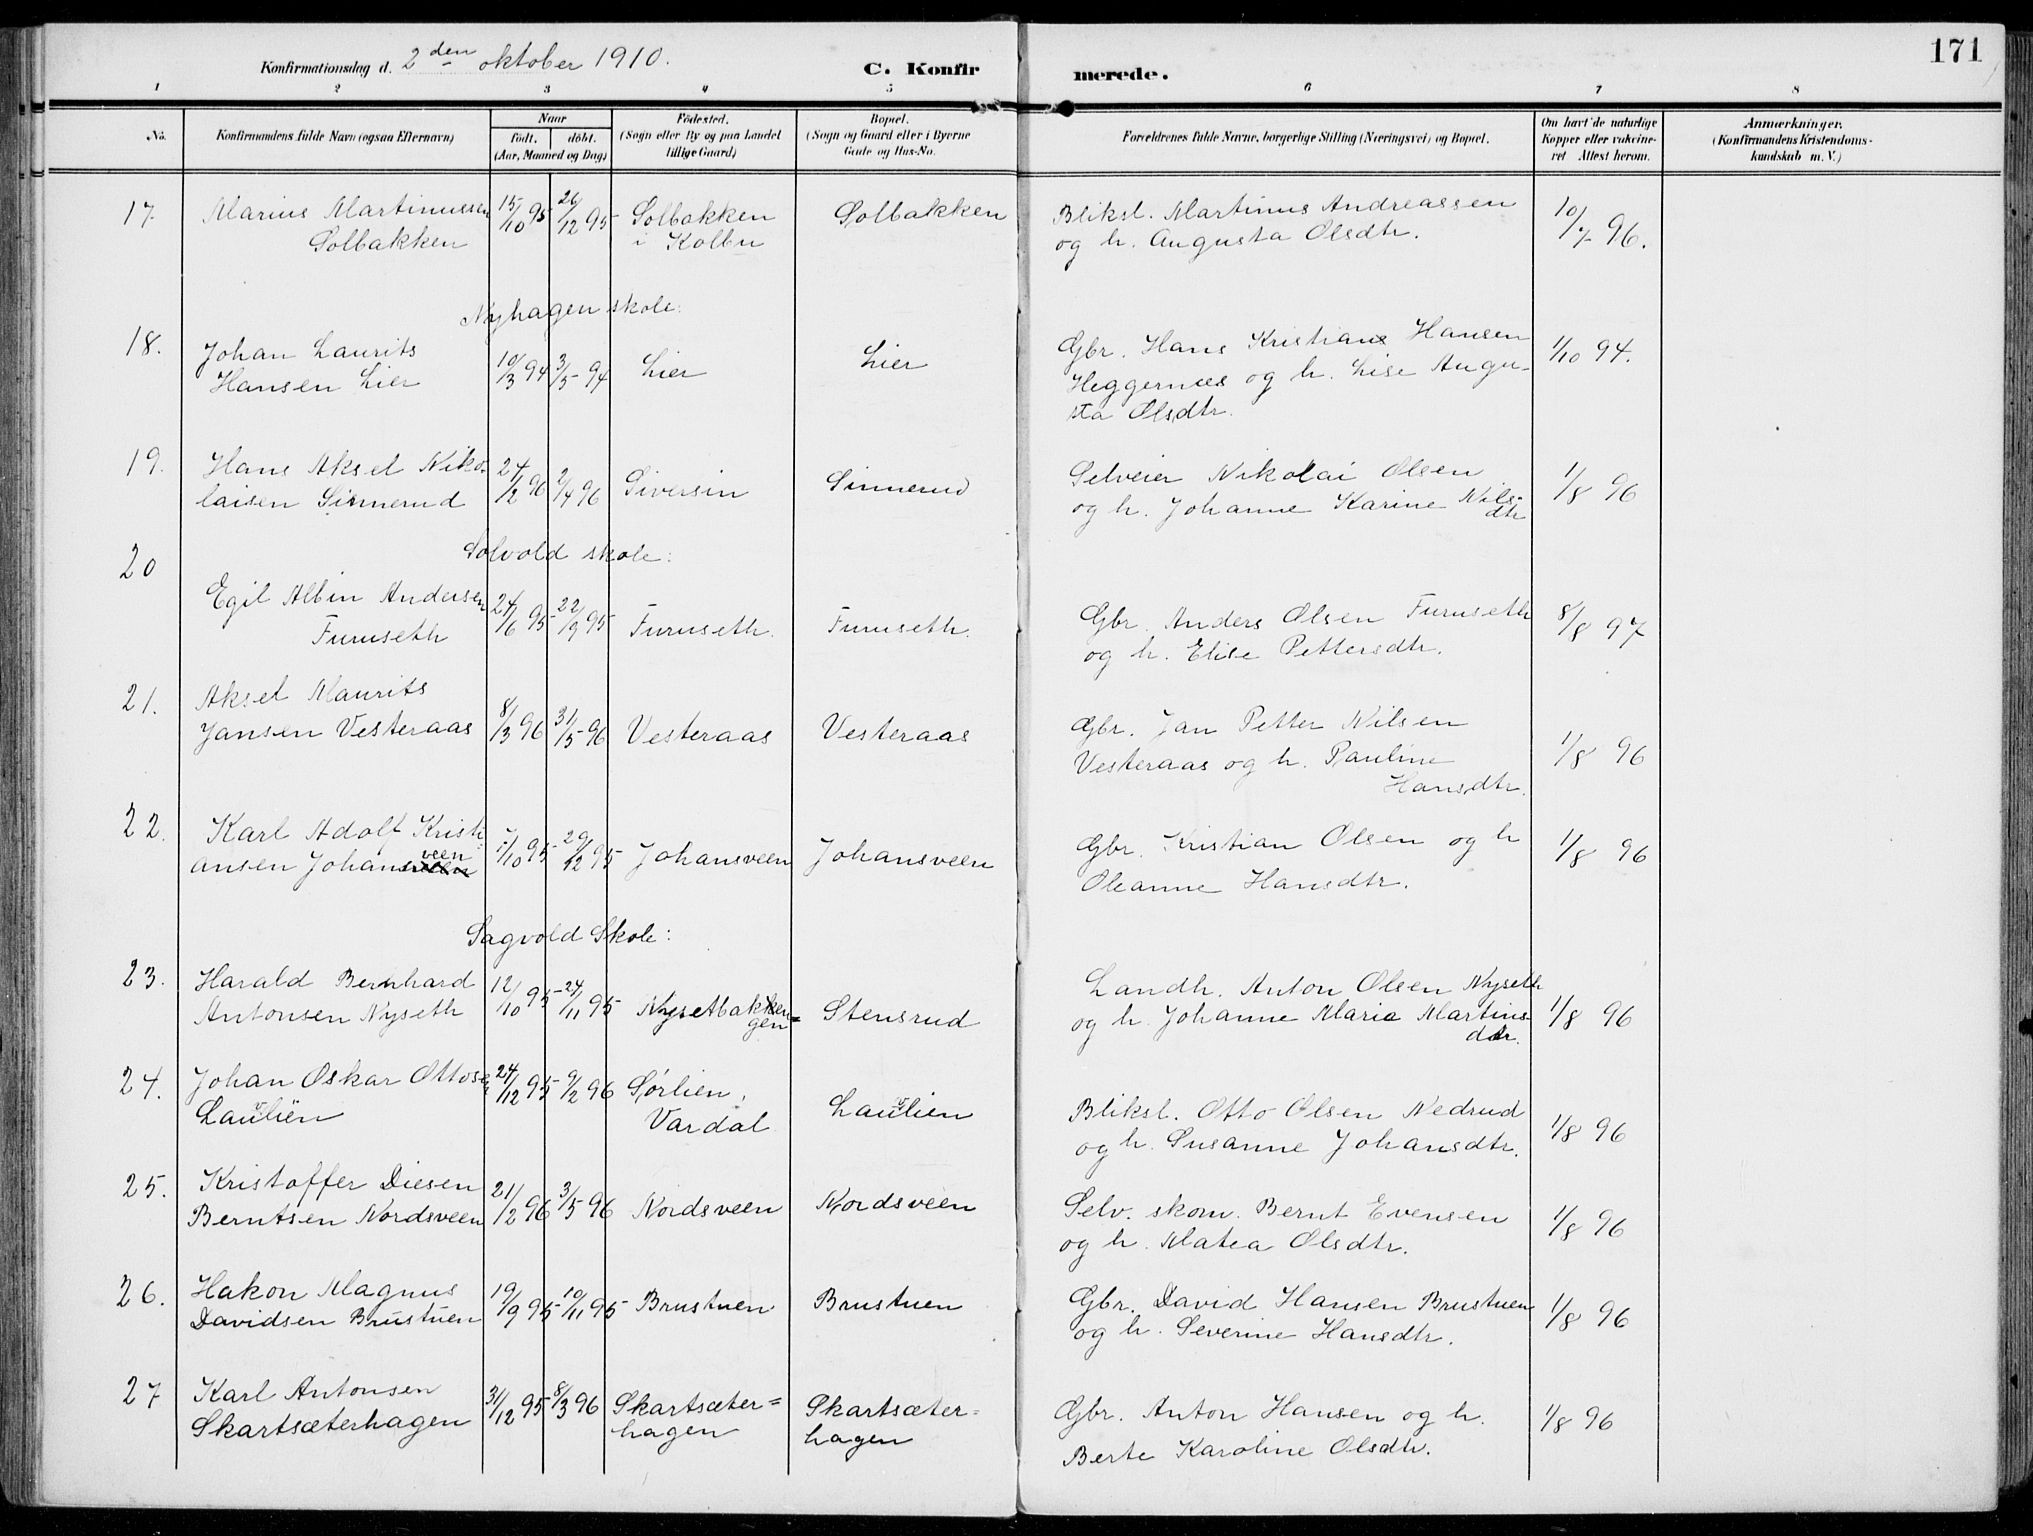 171
Konfirmationsdag d. 2den oktober 1910.
C. Konfirmerede.
1 2 3 4 5 6 7 8
No. Konfirmandens fulde Navn (ogsaa Efternavn) Naar födt. döbt. (Aar, Maaned og Dag) Födested. (Sogn eller By og paa Landet tillige Gaard) Bopæl. (Sogn og Gaard eller i Byerne Gade og Hus-No. Forældrenes fulde Navne, borgerlige Stilling (Næringsvei) og Bopæl. Om havt de naturlige Kopper eller vakcineret Attest herom. Anmærkninger. (Konfirmandens Kristendomskundskab m. V.)
17 Marius Martinussen 15/10 95 26/12 95 Solbakken Solbakken Bliksl. Martinus Andreassen 10/7 96.
Solbakken i Kolbu og h. Augusta Olsdtr.
Nyhagen skole:
18. Johan Laurits 10/3 94 3/5 94 Lier Lier Gbr. Hans Kristians Hansen 1/10 94.
Hansen Lier Heggernæs og h. Lise Augu-
sta Olsdtr.
19. Hans Aksel Niko- 24/2 96 2/4 96 Siversin Sinnerud Selveier Nikolai Olsen 1/8 96
laisen Sinnerud og h. Johanne Karine Nils-
dtr
Solvold skole:
20 Egil Albin Andersen 24/6 95 22/9 95 Furuseth. Furuseth. Gbr. Anders Olsen Furuseth 8/8 97
Furuseth og h. Elise Pettersdtr.
21. Aksel Maurits 8/3 96 31/5 96 Vesteraas Vesteraas Gbr. Jan Petter Nilsen 1/8 96
Jansen Vesteraas Vesteraas og h. Pauline
Hansdtr.
22. Karl Adolf Kristi /10 95 29/12 95 Johansveen Johansveen Gbr. Kristian Olsen og h 1/8 96
ansen Johansveen Oleanne Hansdtr.
Sagvold Skole:
23. Harald Bernhard 12/10 95 24/11 95 Nysetbakken= Stensrud Landh. Anton Olsen Nyseth 1/8 96
Antonsen Nyseth gen og h. Johanne Marie Martins-
dtr.
24. Johan Oskar Ottosen 24/12 95 9/2 96 Sørlien, Laulien Bliksl. Otto Olsen Nedrud 1/8 96
Laulien Vardal og h. Susanne Johansdtr.
25. Kristoffer Diesen 21/2 96 3/5 96 Nordsveen Nordsveen Selv. skom. Bernt Evensen 1/8 96
Berntsen Nordsveen og h. Matea Olsdtr.
26. Hakon Magnus 19/9 95 10/11 95 Brustuen Brustuen Gbr. David Hansen Brustuen 1/8 96
Davidsen Brustuen og h. Severine Hansdtr.
27 Karl Antonsen 31/12 95 8/3 96 Skartsæter= Skartsæter- Gbr. Anton Hansen og h. 1/8 96
Skartsæterhagen hagen hagen Berte Karoline Olsdtr.